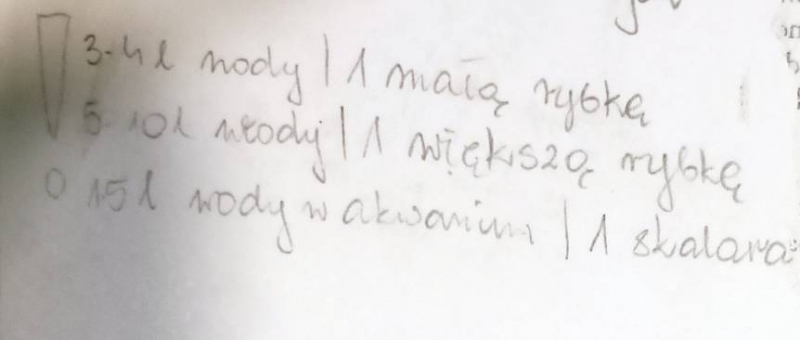 3-4 l wody / 1 małą rybkę
5-10 l włody / 1 większą rybkę
15 l wody w akwarium / 1 skalara